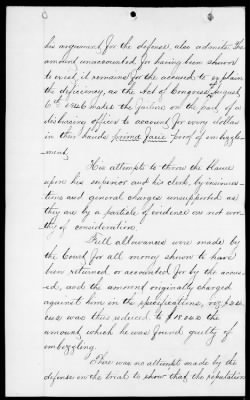 his argument for the defense, also admits. The
amount unaccounted for having been shown
to exist, it remains for the accused to explain
the deficiency, as the Act of Congress, August
6th 1846 makes the failure on the part of a
disbursing officer to account for every dollar
in their hands prima facie proof of embezzle-
ment.
His attempts to throw the blame
upon his superior and his clerk, by insinua-
tions and general charges unsupported as
they are by a particle of evidence are not wor-
thy of consideration.
Full allowances were made by
the Court for all money shown to have
been returned or accounted for by the accus-
ed, and the amount originally charged
against him in the specifications, viz.
was thus reduced to the
amount which he was found guilty of
embezzling.
There was no attempt made by the
defense on the trial to show that the reputation